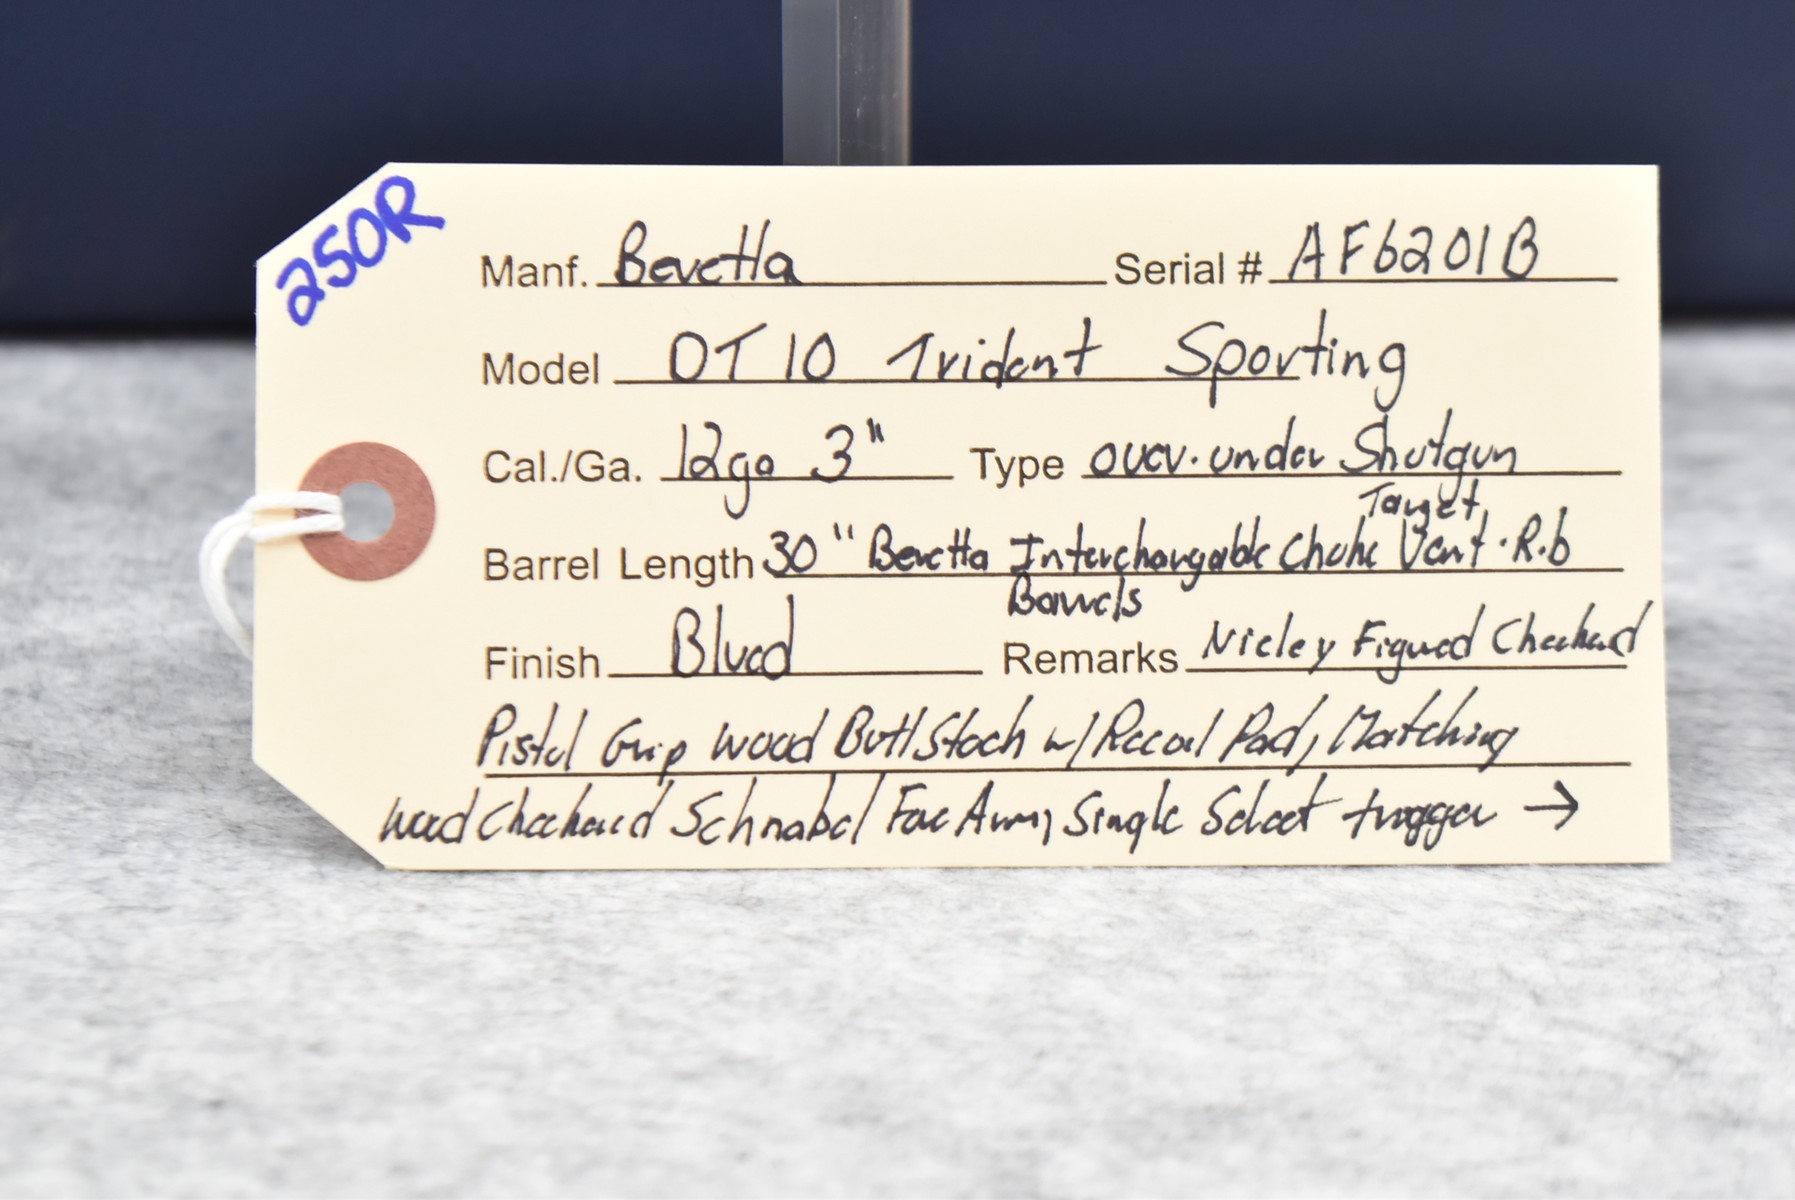 250R
Manf. Beretta Serial # AF6201B
Model DT10 Trident Sporting
Cal./Ga. 12ga 3" Type over-under Shotgun
Target
Barrel Length 30" Beretta Interchangable Choke Vent-Rib
Barrels
Finish Blued Remarks Nicley Figured Checkered
Pistol Grip Wood Buttstock w/ Recoil Pad, Matching
Wood Checkered Schnabel Fore Arm, Single Select trigger →